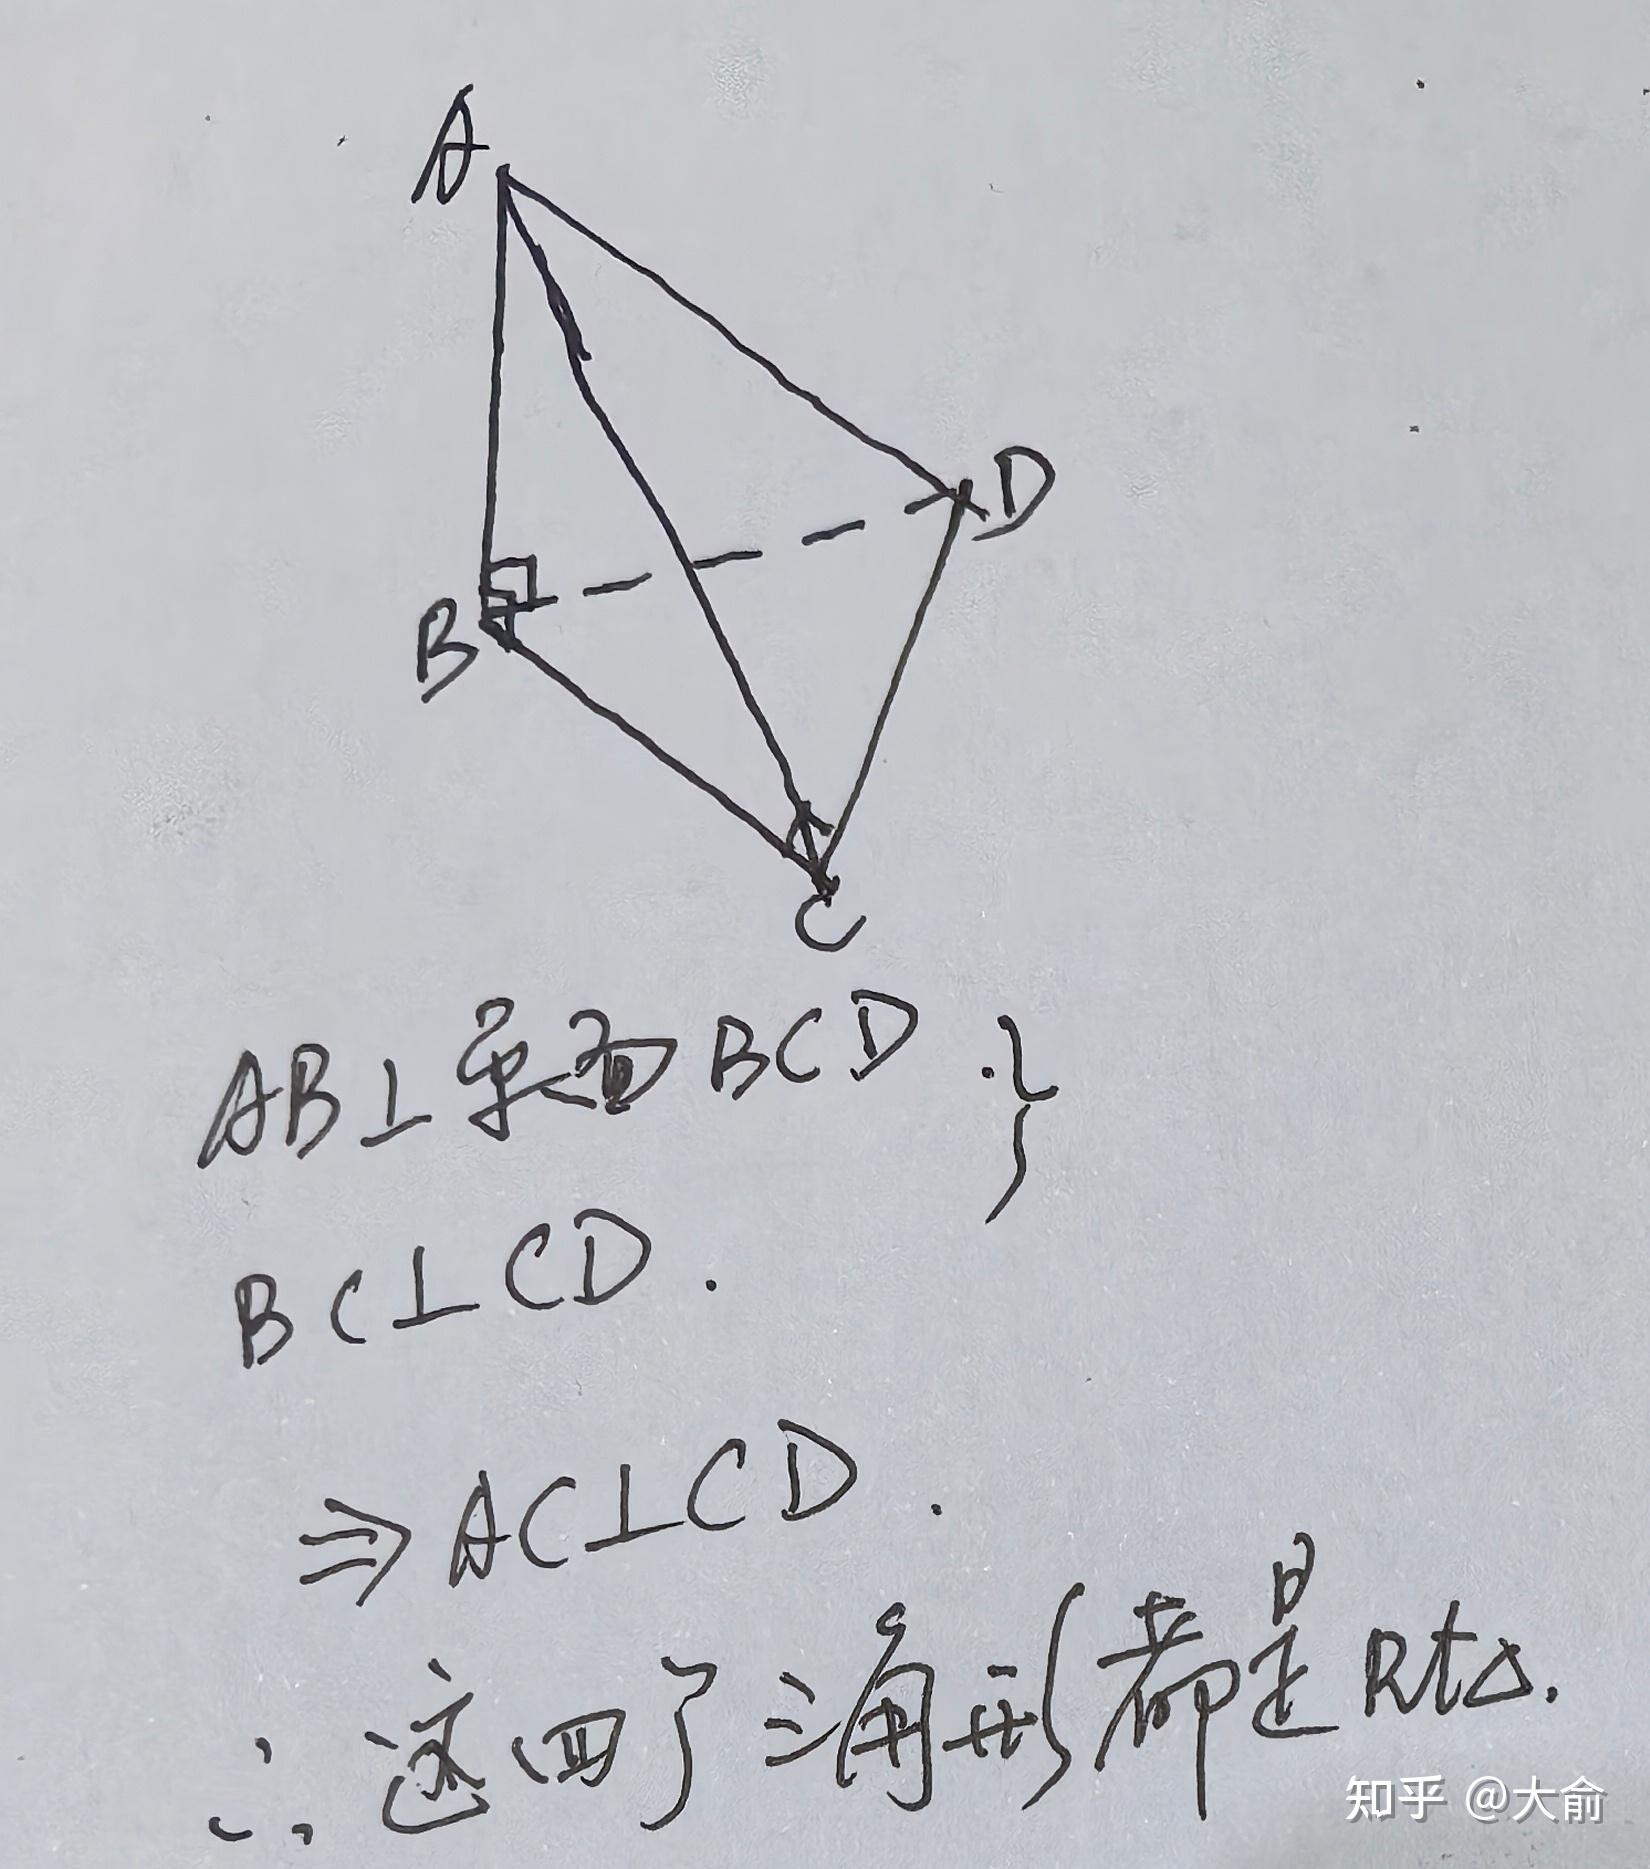 A
D
B
C
AB⊥平面BCD.}
BC⊥CD.
⇒AC⊥CD.
∴这四个三角形都是Rt△.
知乎 @大俞